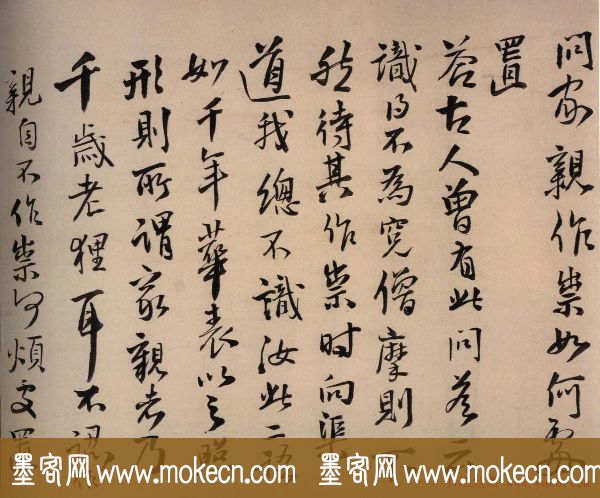 問家親作祟如何處
置
答古人曾有此問答云
識得不為冤僧摩則
然待其作祟時向渠
道我總不識汝此二語
如千年華表以之照
形則所謂家親者乃
千歲老狸耳不
親自不作祟何煩處置
墨客网 www.mokecn.com 墨客网 www.mokecn.com